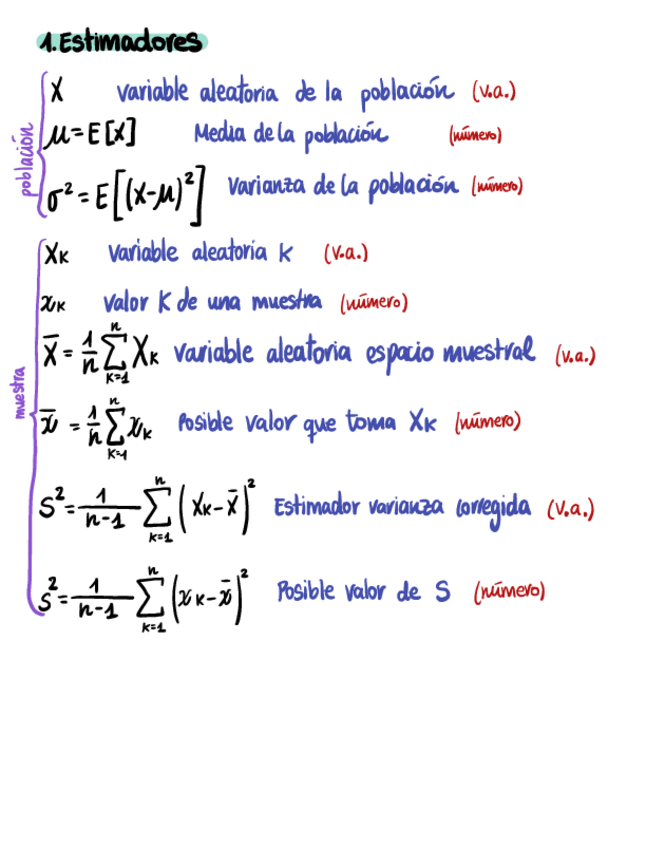 1. Estimadores
población
X variable aleatoria de la población (v.a.)
μ = E[X] Media de la población (número)
σ² = E[(X-μ)²] Varianza de la población (número)
muestra
Xₖ Variable aleatoria K (v.a.)
xₖ Valor K de una muestra (número)
X̄ = 1/n ∑ₖ₌₁ⁿ Xₖ Variable aleatoria espacio muestral (v.a.)
x̄ = 1/n ∑ₖ₌₁ⁿ xₖ Posible valor que toma Xₖ (número)
S² = 1/(n-1) ∑ₖ₌₁ⁿ (Xₖ - X̄)² Estimador varianza corregida (v.a.)
s² = 1/(n-1) ∑ₖ₌₁ⁿ (xₖ - x̄)² Posible valor de S (número)